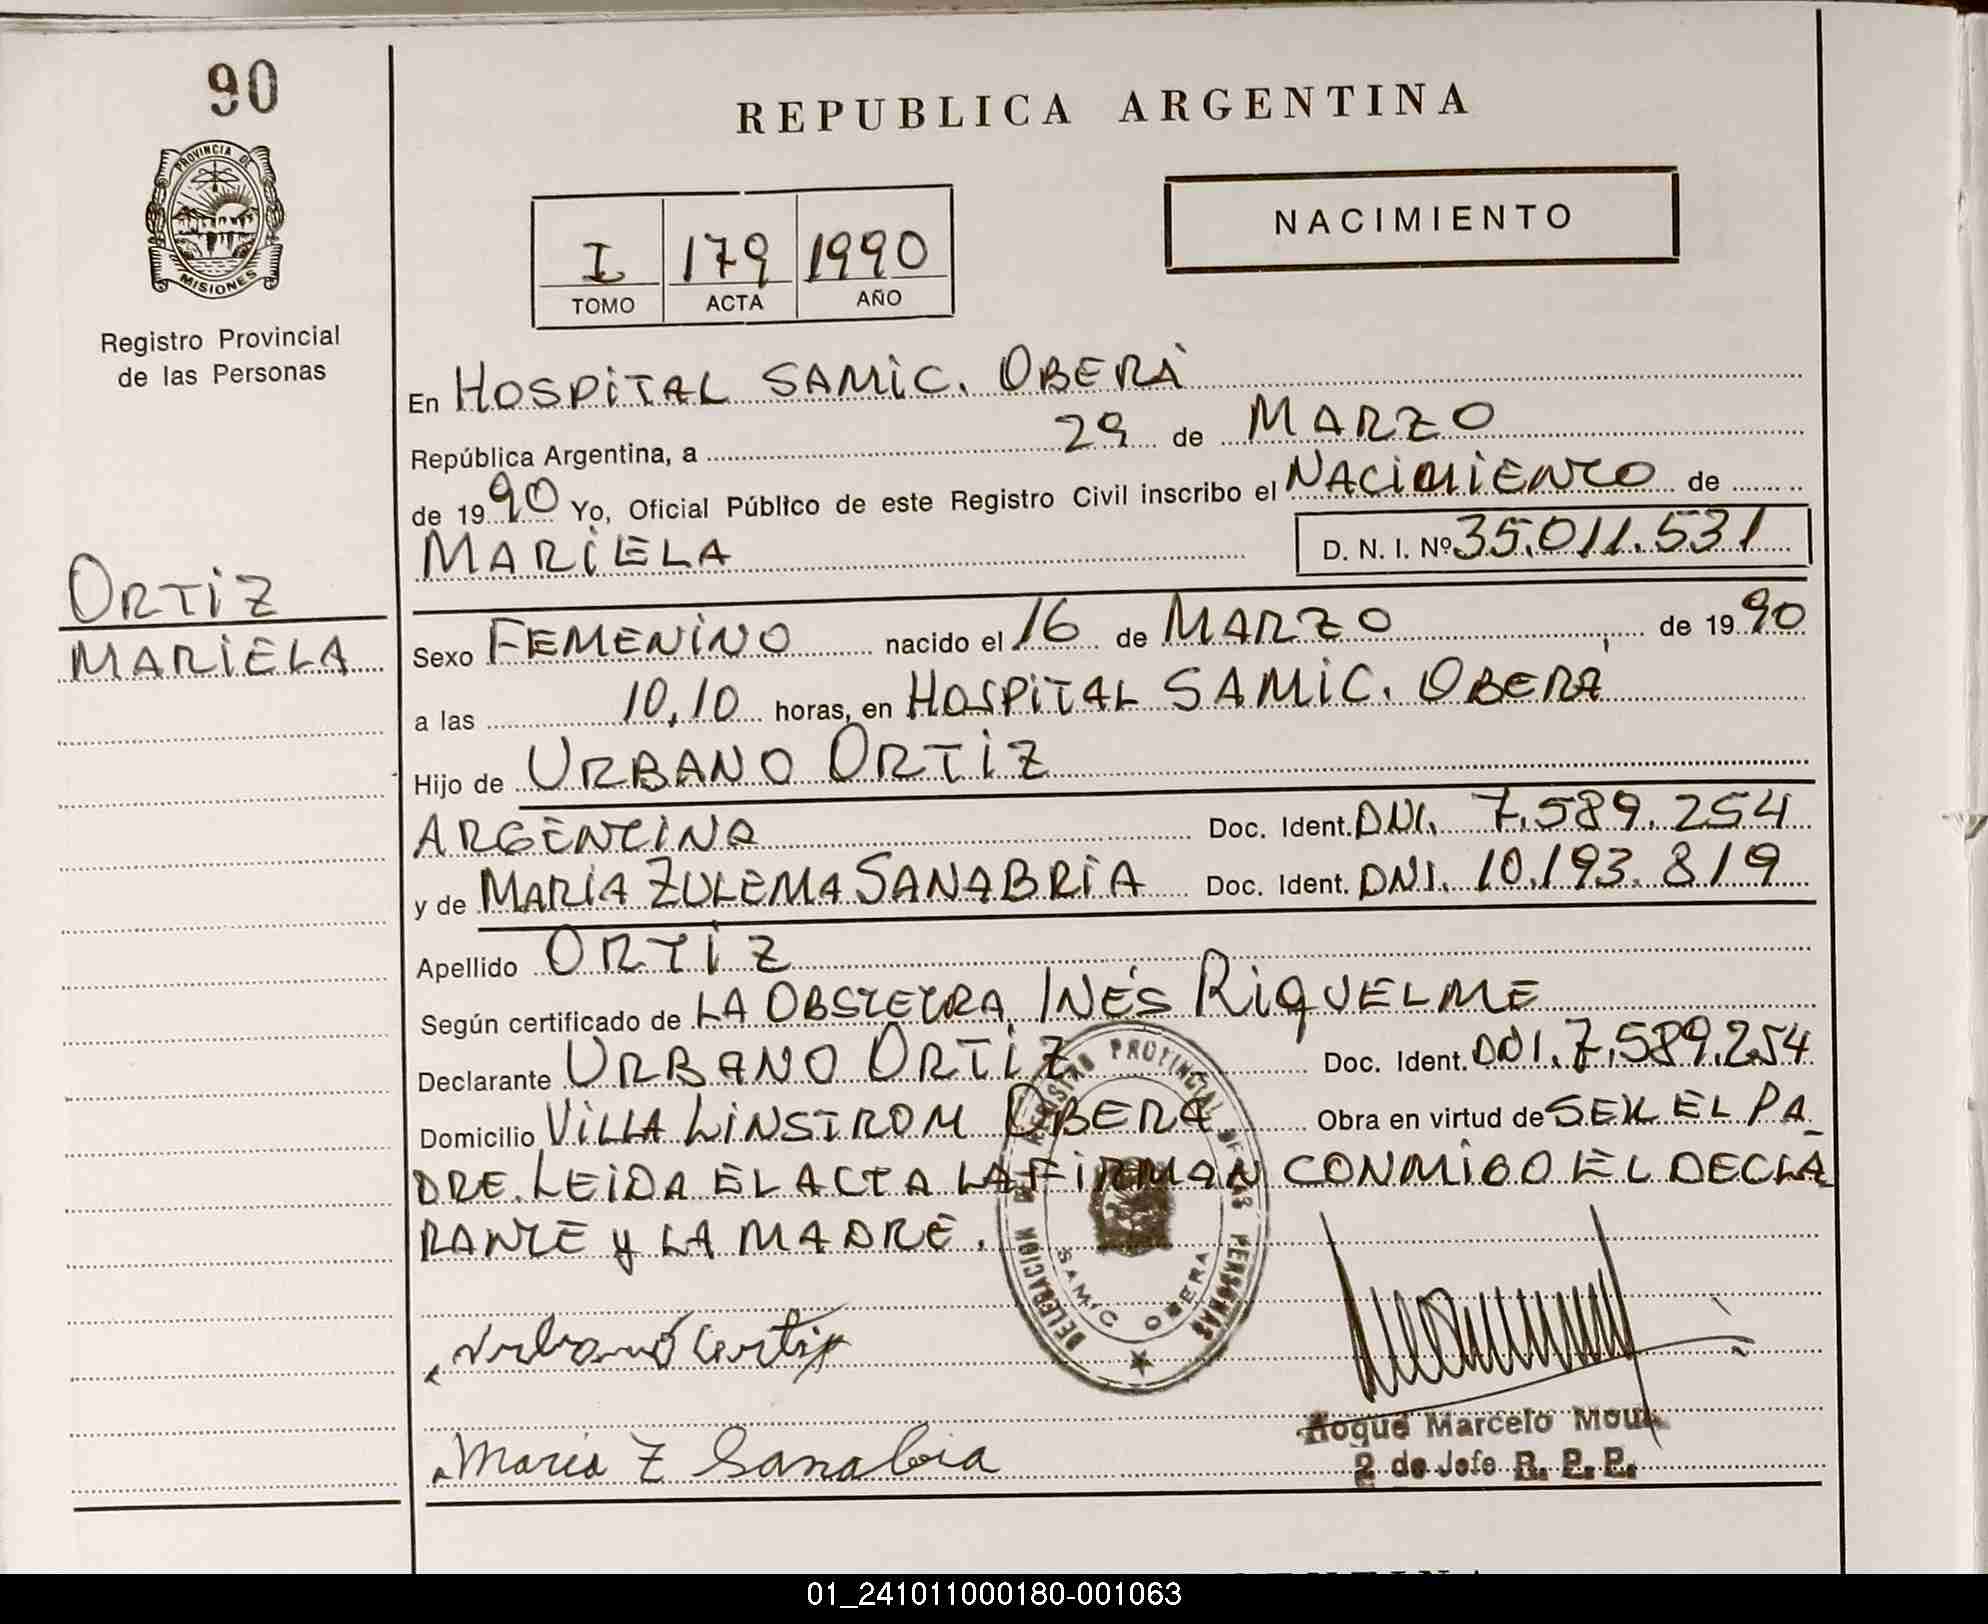 90
PROVINCIA DE
MISIONES
Registro Provincial
de las Personas
ORTIZ
MARIELA
REPUBLICA ARGENTINA
I 179 1990
TOMO ACTA AÑO
NACIMIENTO
En HOSPITAL SAMIC. OBERÁ
República Argentina, a 29 de MARZO
de 1990 Yo, Oficial Público de este Registro Civil inscribo el NACIMIENTO de
MARIELA D. N. I. Nº 35.011.531
Sexo FEMENINO nacido el 16 de MARZO de 1990
a las 10,10 horas, en HOSPITAL SAMIC. OBERÁ
Hijo de URBANO ORTIZ
ARGENTINA Doc. Ident. DNI. 7.589.254
y de MARIA ZULEMA SANABRIA Doc. Ident. DNI. 10.193.819
Apellido ORTIZ
Según certificado de LA OBSTETRA, INÉS RIQUELME
Declarante URBANO ORTIZ Doc. Ident. DNI. 7.589.254
Domicilio VILLA LINSTROM OBERA Obra en virtud de SER EL PA-
DRE. LEIDA EL ACTA LA FIRMAN CONMIGO EL DECLA
RANTE y LA MADRE.
REGISTRO PROVINCIAL DE LAS PERSONAS
DELEGACION
SAMIC OBERA
Urbano Ortiz
Maria Z Sanabria
Roque Marcelo
2 de Jefe R. P. P.
01_241011000180-001063